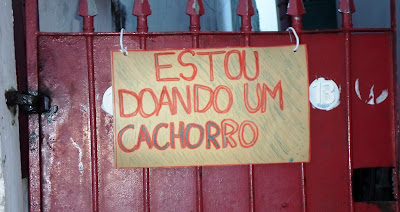 ESTOU
DOANDO UM
CACHORRO